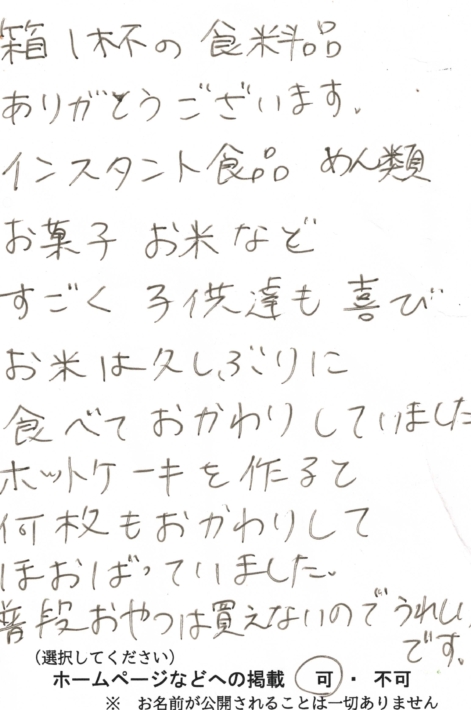 箱1杯の 食料品
ありがとうございます。
インスタント食品 めん類
お菓子 お米など
すごく 子供達も 喜び
お米は久しぶりに
食べて おかわり していました
ホットケーキを 作ると
何枚もおかわりして
ほおばっていました。
普段おやつは買えないのでうれしい
です。
(選択してください)
ホームページなどへの掲載 可 ・ 不可
※ お名前が公開されることは一切ありません